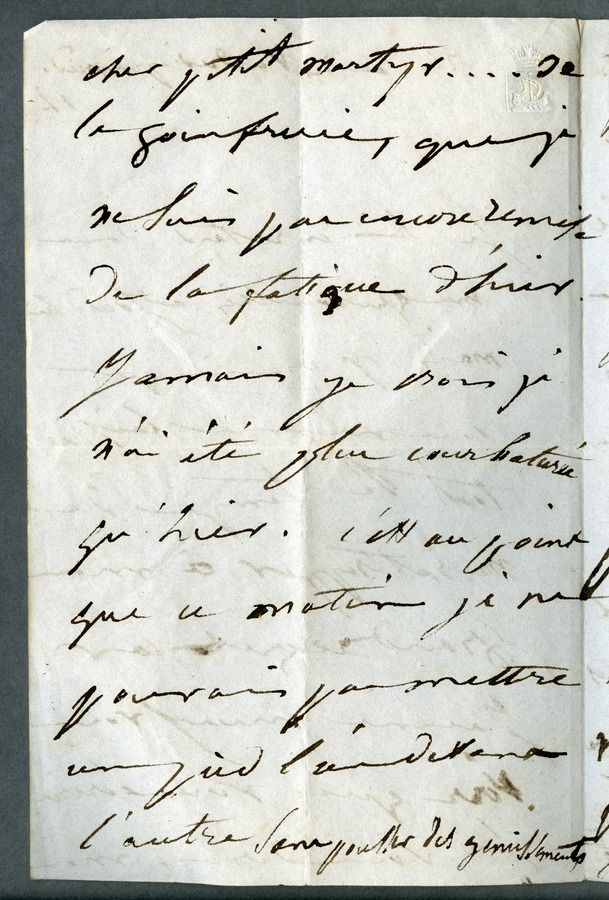 cher p'tit martyr.... de
la goinfrerie, que je
ne suis pas encore remise
de la fatigue d'hier.
Jamais je crois je
n'ai été plus courbaturée
qu'hier. c'est au point
que ce matin je ne
pouvais pas mettre
un pied l'un devant
l'autre sans pousser des gémissements